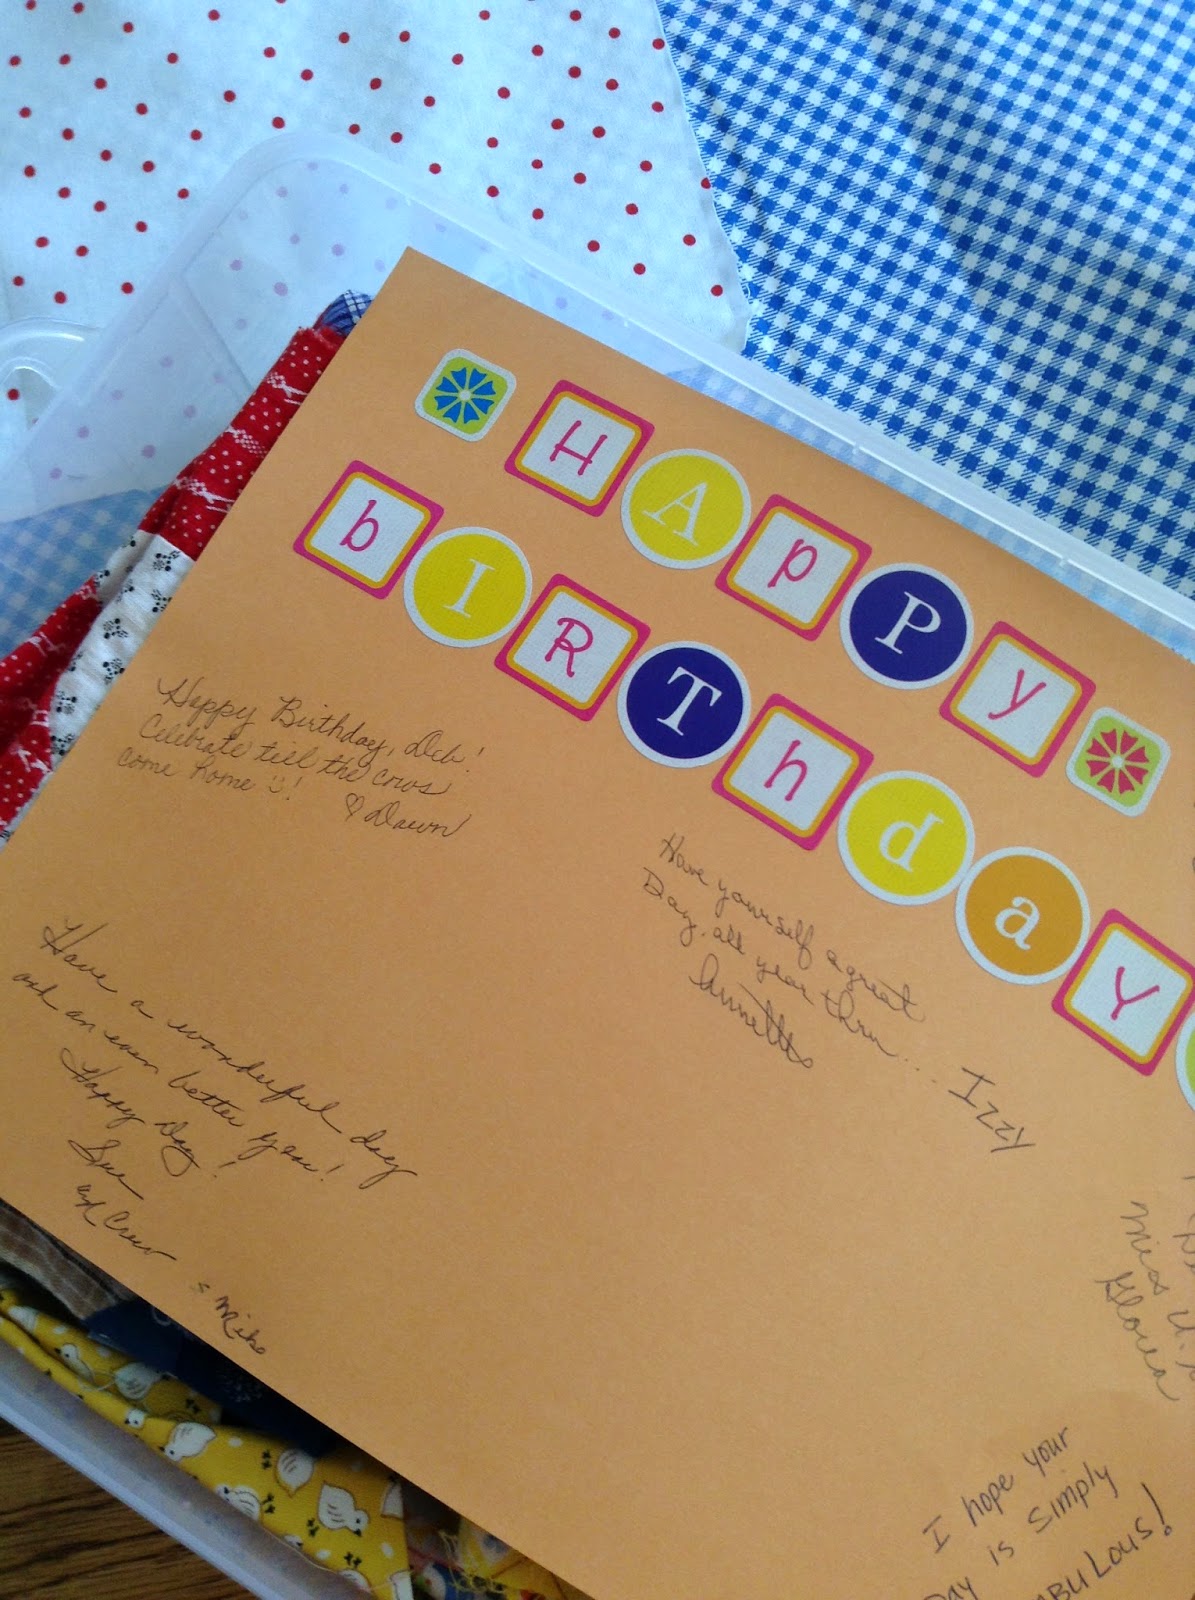 HAPPY
bIRThdaY
Happy Birthday, Deb!
Celebrate till the cows
come home !
Dawn
Have yourself a great
Day, all year thru...
Annette
Izzy
Have a wonderful day
and an even better year!
Happy Day!
Sue
and Crew
Miss
Gloria
I hope your
is simply